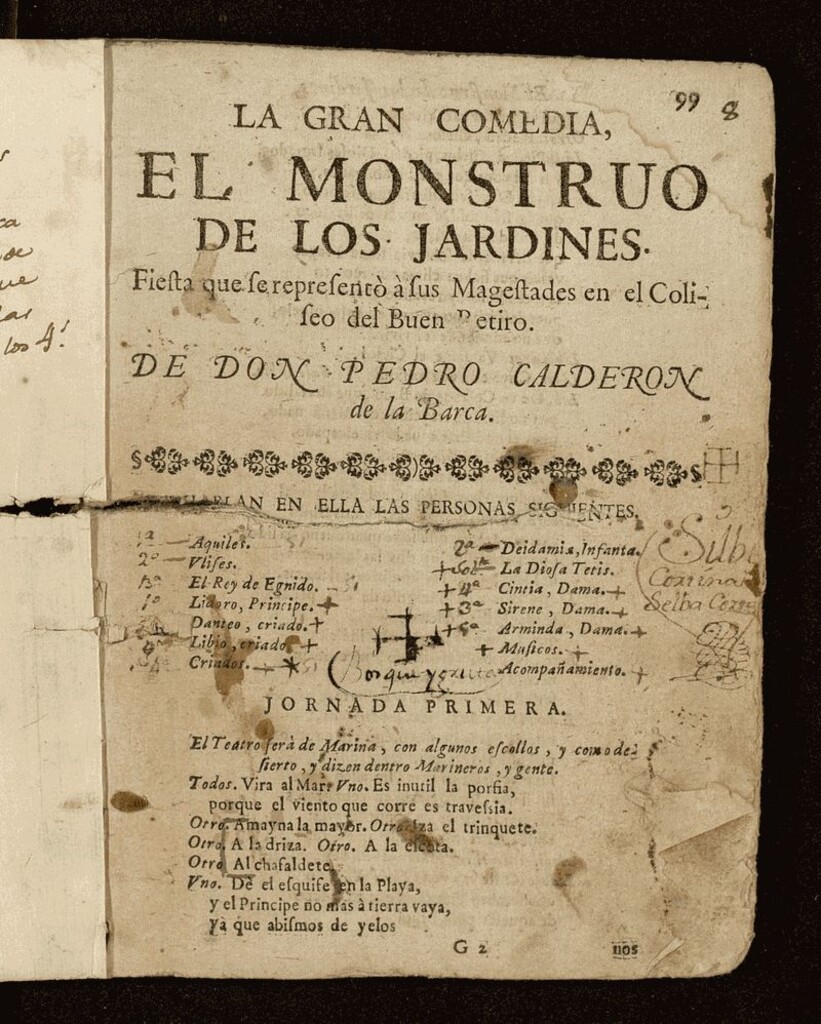 99 8
LA GRAN COMEDIA,
EL MONSTRUO
DE LOS JARDINES.
Fiesta que se representò à sus Magestades en el Coli-
seo del Buen Retiro.
DE DON PEDRO CALDERON
de la Barca.
EN ELLA LAS PERSONAS
1ª — Aquiles.
2º — Vlises.
El Rey de Egnido.
1º — Lidoro, Principe. +
Danteo, criado. +
Libio, criado. +
Criados.
2ª — Deidamia, Infanta.
+ La Diosa Tetis.
+4ª Cintia, Dama. +
+3ª Sirene, Dama. +
+5ª Arminda, Dama. +
+ Musicos. +
Acompañamiento. +
Bosque y
Selba
JORNADA PRIMERA.
El Teatro serà de Marina, con algunos escollos, y como de-
sierto, y dizen dentro Marineros, y gente.
Todos. Vira al Mar. Vno. Es inutil la porfia,
porque el viento que corre es travessia.
Otro. Amayna la mayor. Otro. Iza el trinquete.
Otro. A la driza. Otro. A la escota.
Otro. Al chafaldete.
Vno. De el esquife en la Playa,
y el Principe no mas à tierra vaya,
yà que abismos de yelos
G 2 nos
los 4.